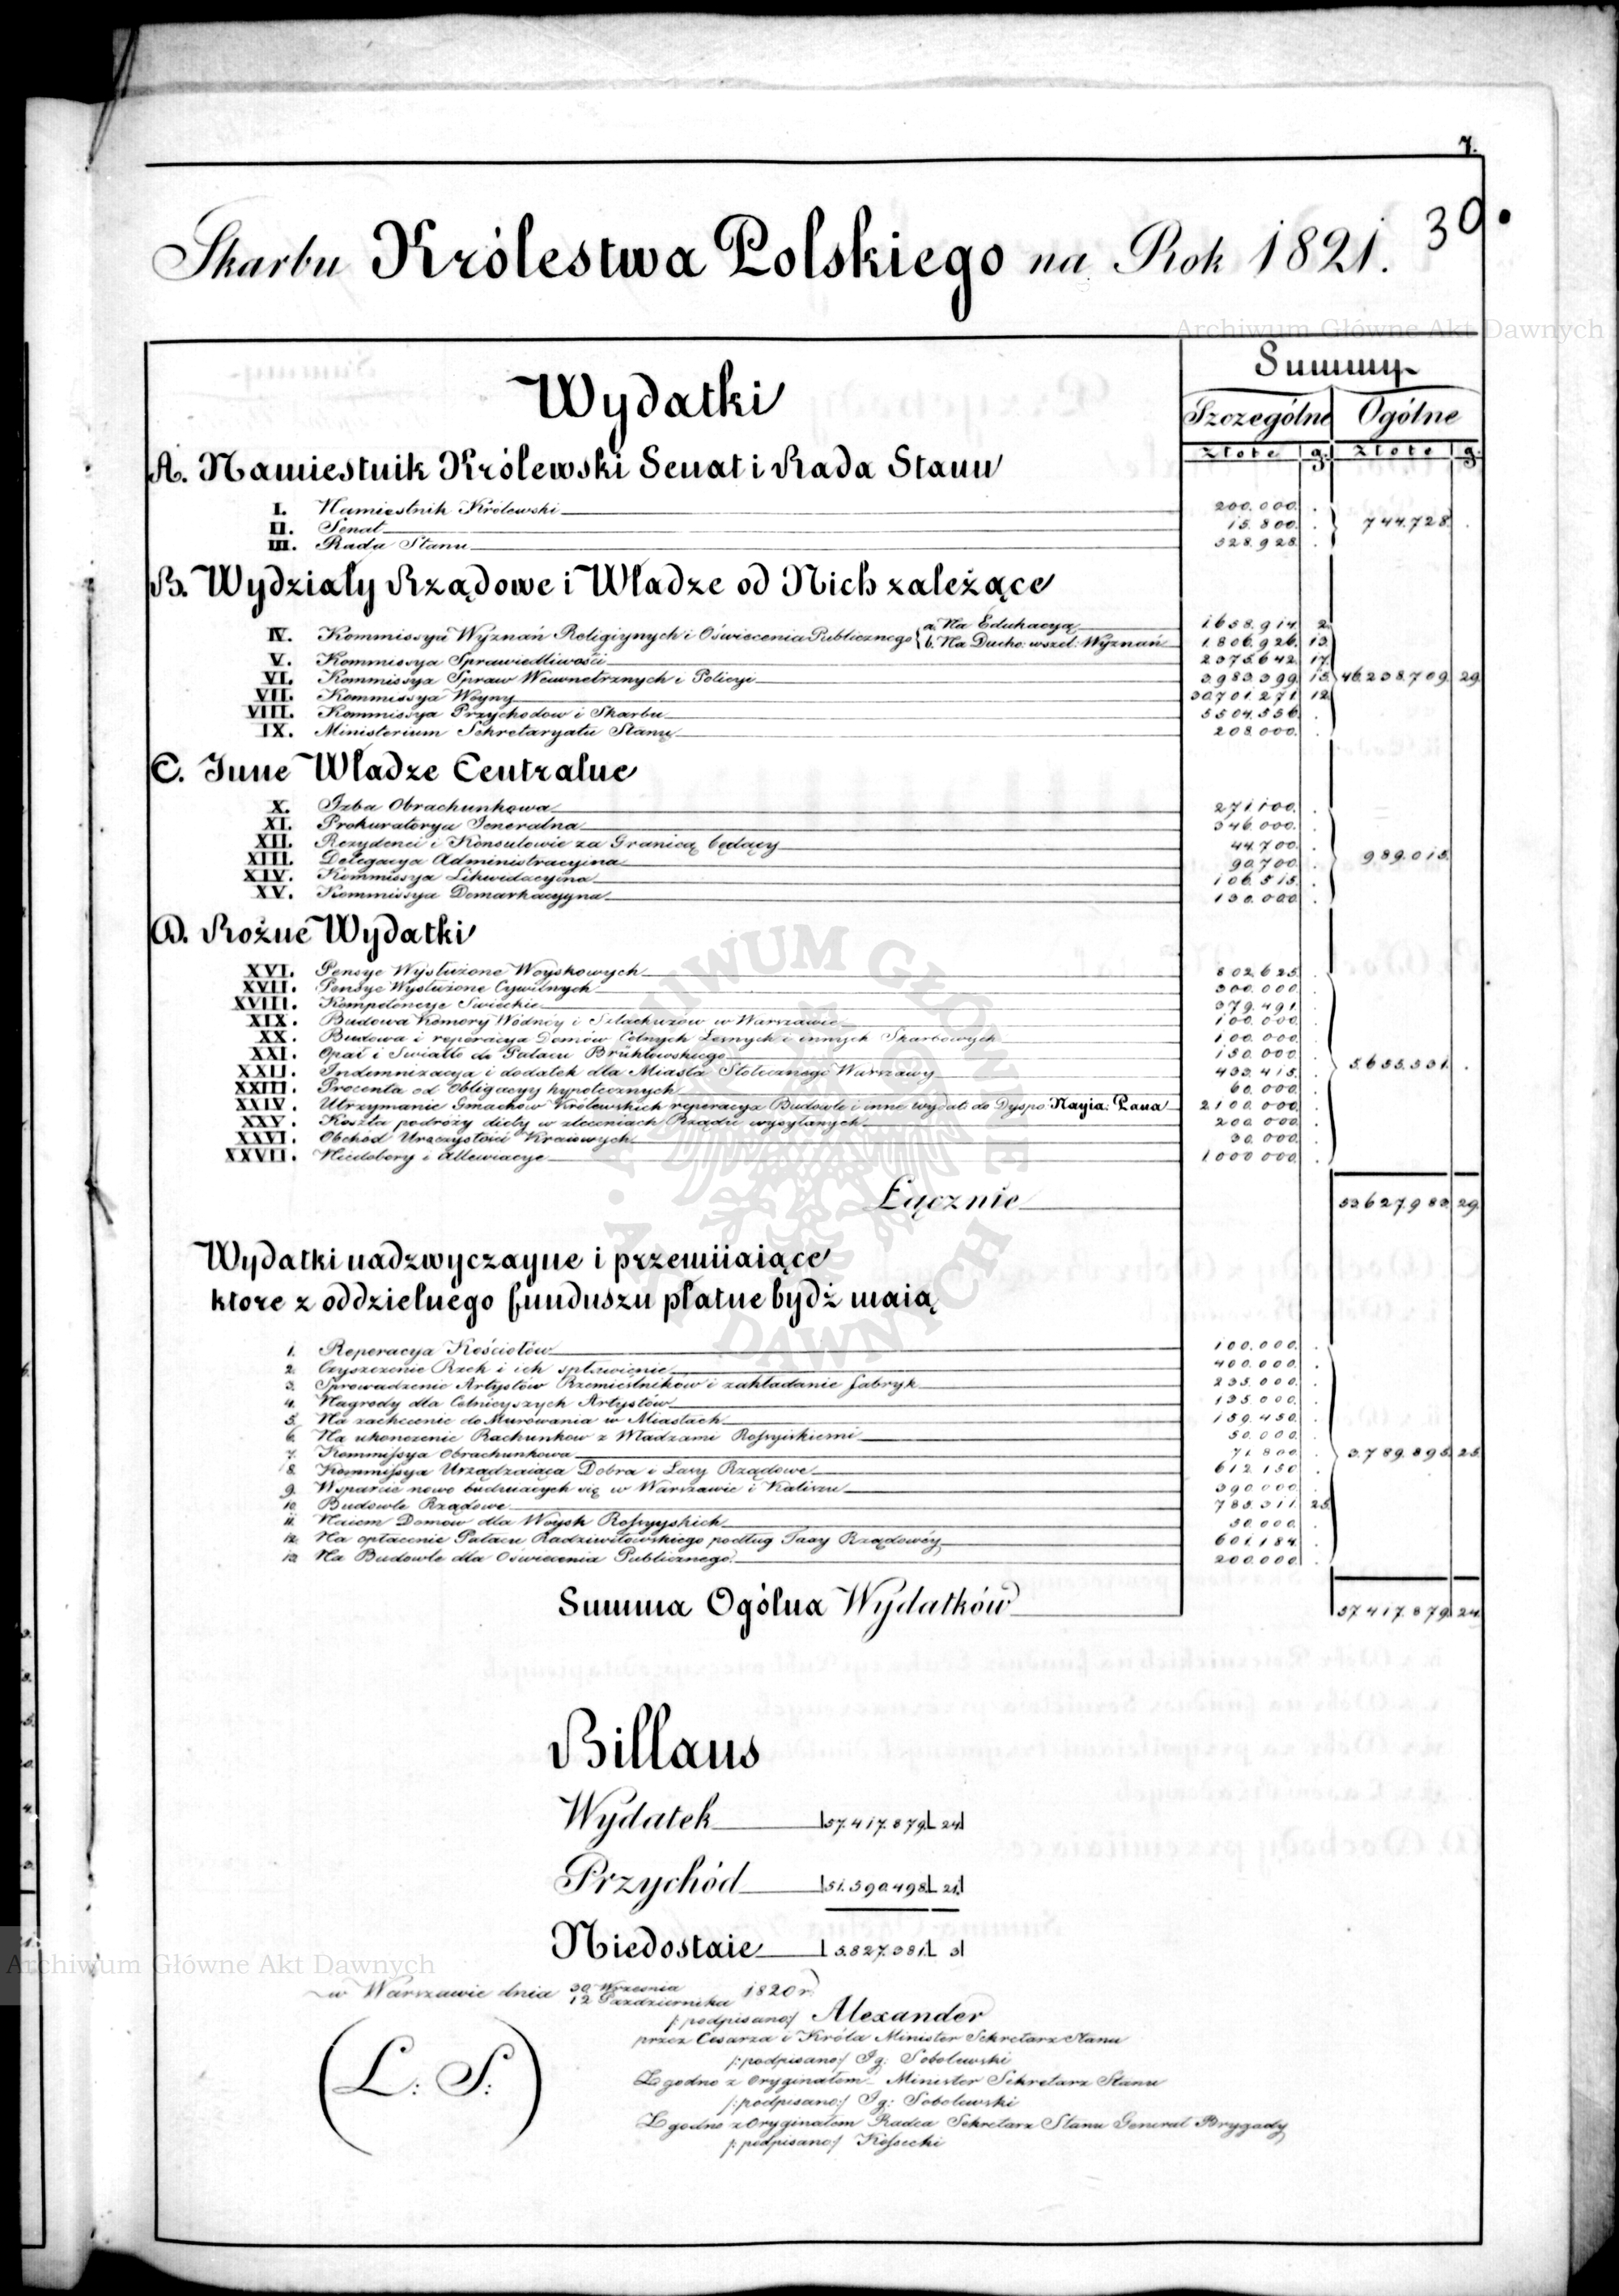 7.
Skarbu Królestwa Polskiego na Rok 1821. 30.
Archiwum Główne Akt Dawnych
Wydatki
Summy
Szczególne Ogólne
złote g. złote g.
A. Namiestnik Królewski Senat i Rada Stanu
I. Namiestnik Królewski 200.000.
II. Senat 15.800. 744.728.
III. Rada Stanu 528.928.
B. Wydziały Rządowe i Władze od Nich zależące
IV. Kommissya Wyznań Religiynych i Oświecenia Publicznego a. Na Edukacyą 1.658.914. 2.
b. Na Ducho: wszel: Wyznań 1.806.926. 13.
V. Kommissya Sprawiedliwości 2.375.642. 17.
VI. Kommissya Spraw Wewnetrznych i Policyi 3.983.399. 15. 46.238.709. 29.
VII. Kommissya Woyny 30.701.271. 12.
VIII. Kommissya Przychodow i Skarbu 5.504.556.
IX. Ministerium Sekretaryatu Stanu 208.000.
C. Inne Władze Centralne
X. Izba Obrachunkowa 271.100.
XI. Prokuratorya Jeneralna 346.000.
XII. Rezydenci i Konsulowie za Granicą będący 44.700.
XIII. Delegacya Administracyina 90.700. 989.015.
XIV. Kommissya Likwidacyina 106.515.
XV. Kommissya Demarkacyyna 130.000.
D. Rożne Wydatki
XVI. Pensye Wysłużone Woyskowych 802.625.
XVII. Pensye Wysłużone Cywilnych 300.000.
XVIII. Kompetencye Swieckie 379.491.
XIX. Budowa Komory Wodnéy i Szlachuzów w Warszawie 100.000.
XX. Budowa i reperacya Domów Celnych Lesnych i innych Skarbowych 100.000.
XXI. Opał i Swiatło do Pałacu Brühlowskiego 150.000.
XXII. Indemnizacya i dodatek dla Miasta Stołecznego Warszawy 433.415. 5.655.531.
XXIII. Procenta od Obligacyy hypotecznych 60.000.
XXIV. Utrzymanie Gmachów Królewskich reperacya Budowle i inne wydat: do Dyspo: Nayia: Pana 2.100.000.
XXV. Koszta podróży diety w zleceniach Rządu wysyłanych 200.000.
XXVI. Obchód Uroczystości Kraiowych 30.000.
XXVII. Niedobory i Allewiacye 1.000.000.
Łącznie 53.627.983. 29.
Wydatki nadzwyczayne i przemiiaiące
ktore z oddzielnego funduszu płatne bydż maią
1. Reperacya Kościołów 100.000.
2. Czyszczenie Rzek i ich spławienie 400.000.
3. Sprowadzenie Artystów Rzemieślników i zakładanie fabryk 235.000.
4. Nagrody dla Celnieyszych Artystów 135.000.
5. Na zachcenie do Murowania w Miastach 159.450.
6. Na ukonczenie Rachunkow z Władzami Rossyiskiemi 50.000.
7. Kommissya Obrachunkowa 71.800. 3.789.895. 25.
8. Kommissya Urządzaiąca Dobra i Lasy Rządowe 612.150.
9. Wsparcie nowo buduiących się w Warszawie i Kaliszu 390.000.
10. Budowle Rządowe 785.311. 25.
11. Naiem Domów dla Woysk Rossyyskich 50.000.
12. Na opłacenie Pałacu Radziwiłłowskiego podług Taxy Rządowéy 601.184.
13. Na Budowle dla Oświecenia Publicznego 200.000.
Summa Ogólna Wydatków 57.417.879. 24.
Billans
Wydatek 57.417.879. 24.
Przychód 51.590.498. 21.
Niedostaie 5.827.381. 3.
Archiwum Główne Akt Dawnych
w Warszawie dnia 30 Wrzesnia 1820 r.
12 Pazdziernika
/:podpisano:/ Alexander
przez Cesarza i Króla Minister Sekretarz Stanu
/:podpisano:/ Ig: Sobolewski
(L: S:)
Zgodno z Oryginałem Minister Sekretarz Stanu
/:podpisano:/ Ig: Sobolewski
Zgodno z Oryginałem Radca Sekretarz Stanu Generał Brygady
/:podpisano:/ Kossecki
ARCHIWUM GŁÓWNE AKT DAWNYCH